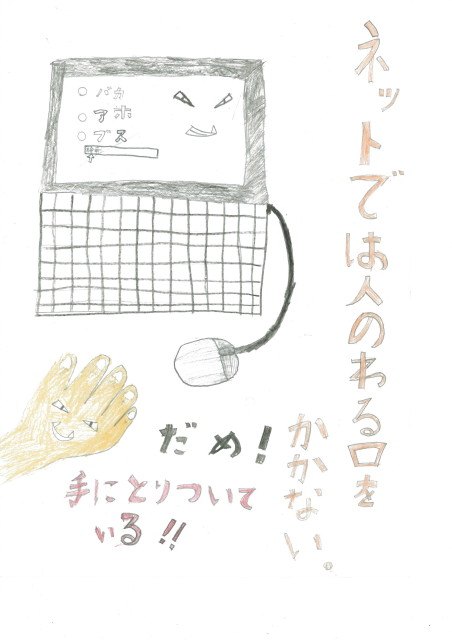 ネットでは人のわる口を
かかない。
バカ
アホ
ブス
だめ!
手にとりついて
いる!!